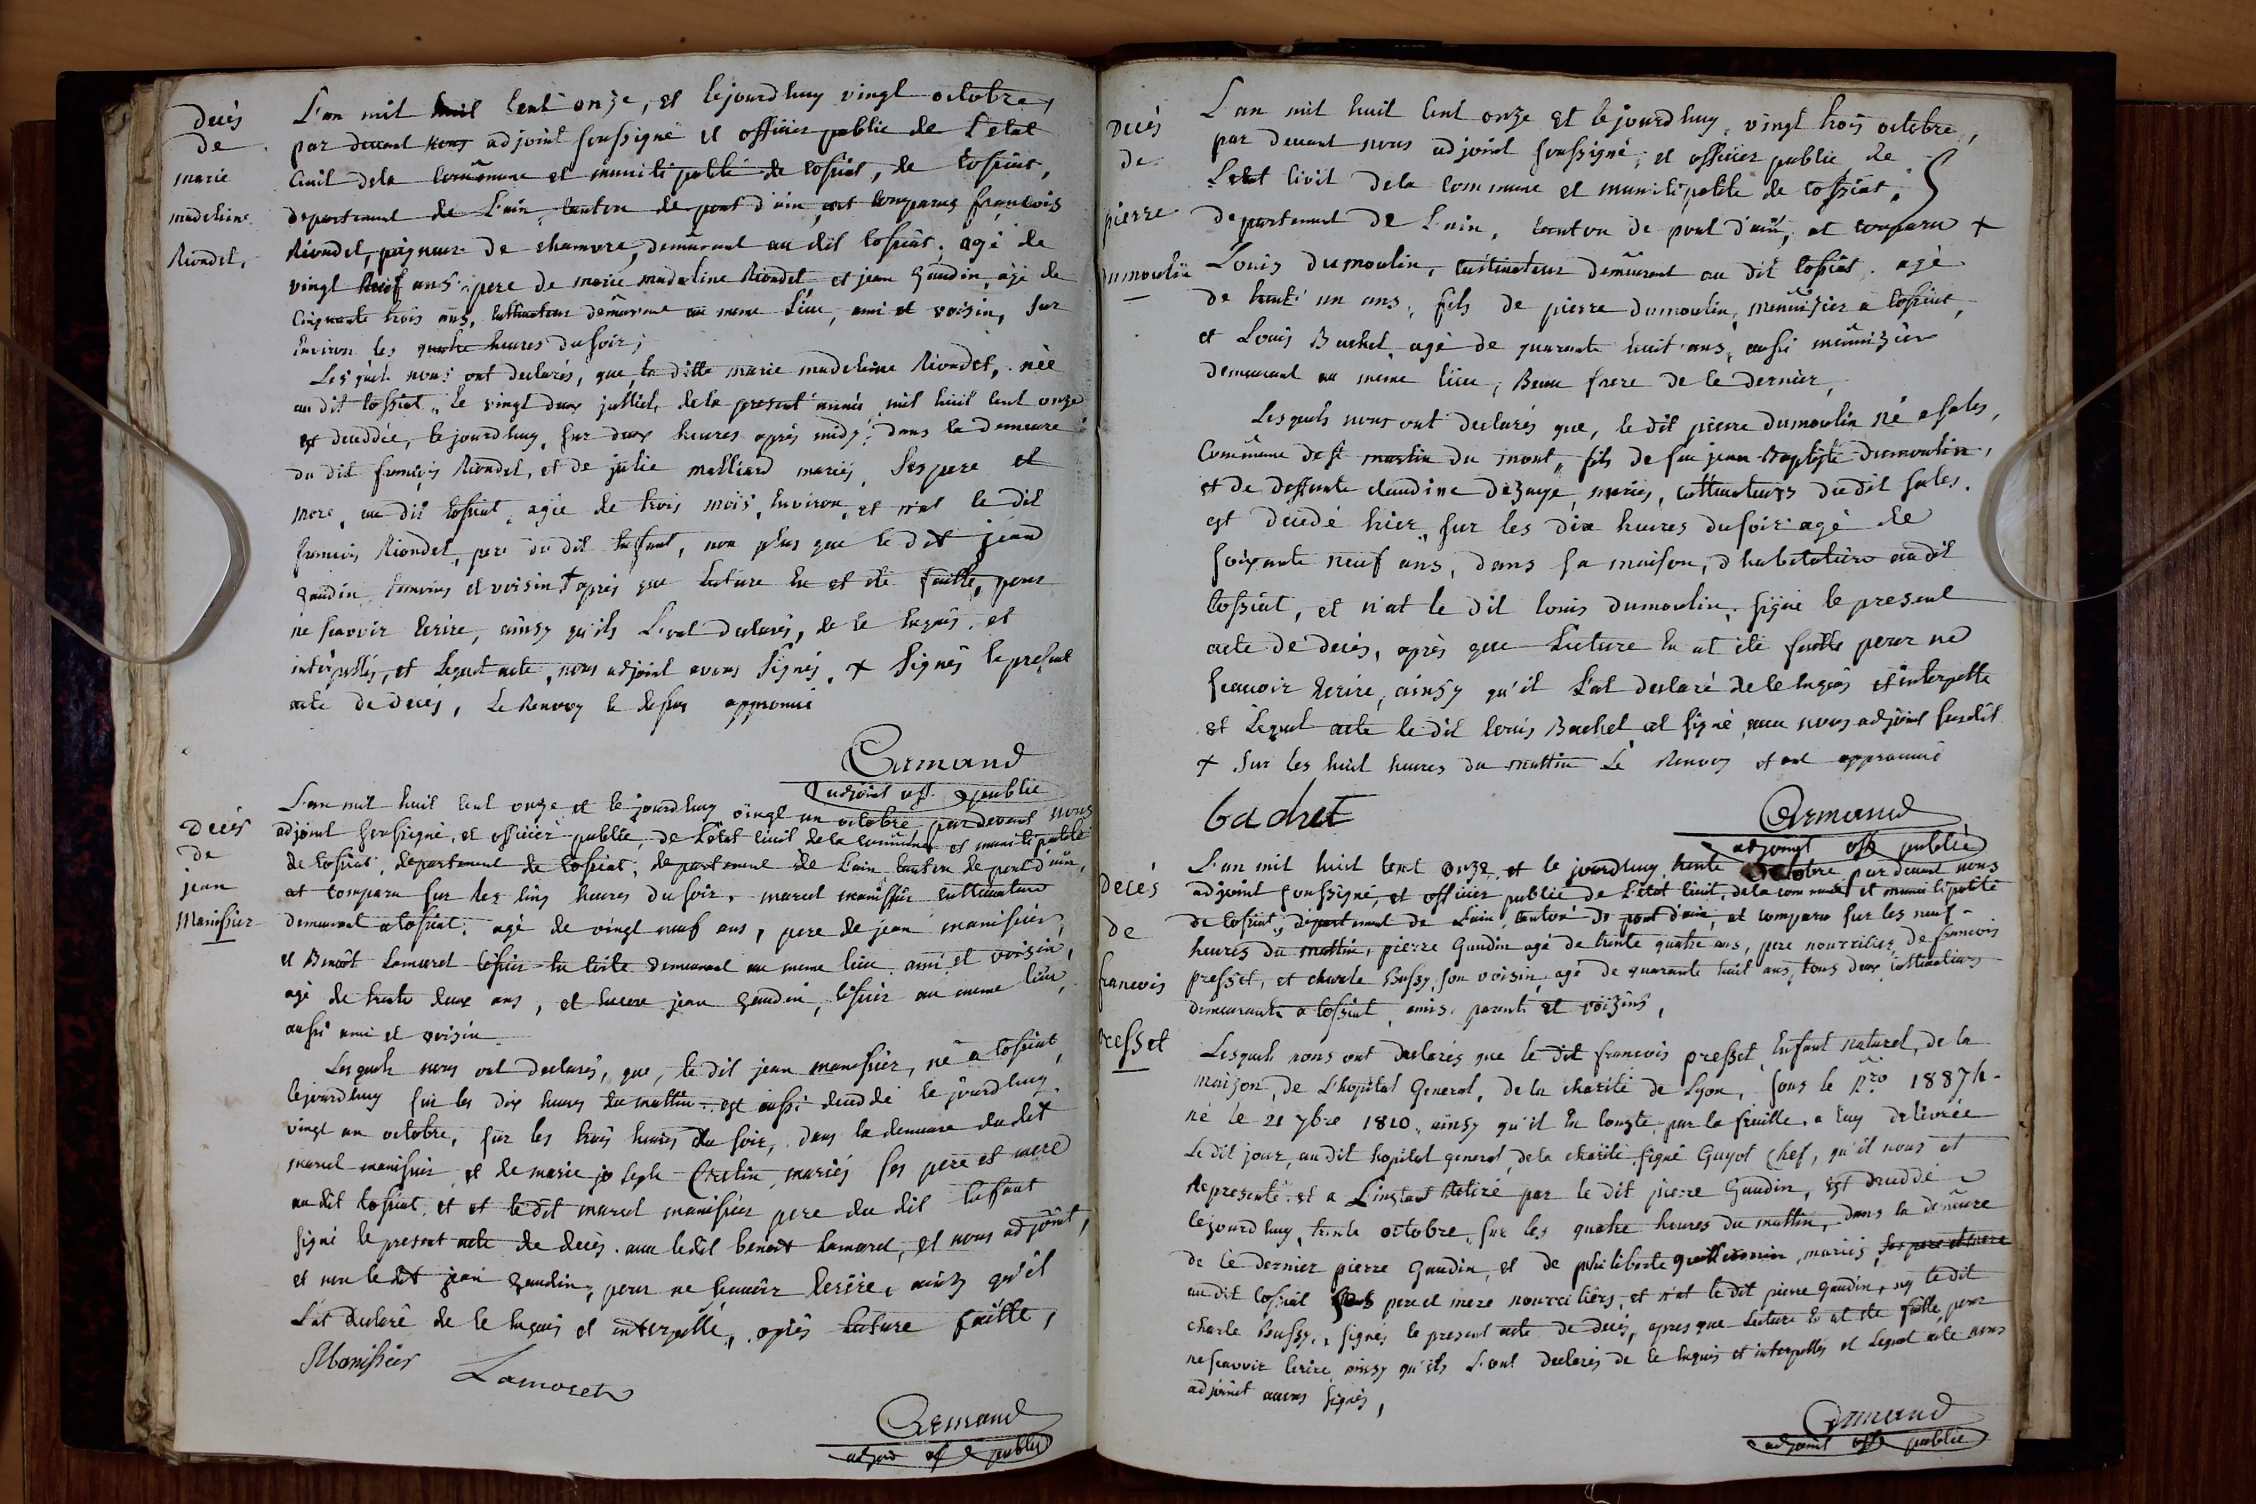 Decès
de
marie
madeleine
Riondet,
L'an mil huit cent onze, et cejourdhuy vingt octobre,
par devant nous adjoint soussigné et officier public de l'etat
civil dela commune et municipalité de tossiat, de tossiat,
departement de L'ain, canton de pont d'ain, ont comparus francois
Riondet, peigneur de chanvre, demeurant au dit tossiat, agé de
vingt neuf ans, pere de marie madeleine Riondet et jean Gaudin, agé de
cinquante trois ans, cultivateur demeurant au meme lieu, ami et voisin, sur
environ les quatre heures du soir,
Lesquels nous ont declarés, que la ditte marie madeleine Riondet, née
au dit tossiat, le vingt deux julliet, de la present année mil huit cent onze
et deceddée, cejourdhuy, sur deux heures après midy, dans la demeure
du dit francois Riondet, et de julie malliard mariés, ses pere et
mere, au dit tossiat, agée de trois mois, environ, et n'at le dit
francois Riondet, pere du dit enfant, non plus que le dit jean
Gaudin temoins et voisin + après que lecture en et été faitte, pour
ne scavoir Ecrire, ainsy qu'ils L'ont declarés, de ce enquis, et
interpellés, et Lequel acte, nous adjoint avons signés, + signés le present
acte de decés, Le Renvoy ce dessus approuvé
Armand
adjoint off public
Decès
de
jean
Manissier
L'an mil huit cent onze et le jourdhuy vingt un octobre par devant nous
adjoint soussigné, et officier public, de L'etat civil de la commune et municipalité
de tossiat, departement de tossiat, departement de L'ain, canton de pont d'ain,
at comparu sur les cinq heures du soir, marcel manissier cultivateur
demeurant a tossiat, agé de vingt neuf ans, pere de jean manissier,
et Benoit Lamoret tissier en toile demeurant au meme lieu, ami et voisin,
agé de trente deux ans, et encore jean Gaudin, tissier au meme lieu,
aussi ami et voisin
Lesquels nous ont declarés, que, le dit jean manissier, né a tossiat,
cejourdhuy sur les dix heures du mattin est aussi deceddé le jourdhuy
vingt un octobre, sur les trois heures du soir, dans la demeure du dit
marcel manissier et de marie josephe Cretin, mariés ses pere et mere
au dit tossiat, et at le dit marcel manissier pere du dit enfant
signé le present acte de decès, avec le dit benoit Lamoret, et nous adjoint,
et non le dit jean Gaudin, pour ne scavoir Ecrire, ainsy qu'il
L'at declaré de ce enquis et interpellé, après Lecture faitte,
Manissier Lamoret
Armand
adjoint off public
Decès
de
pierre
Dumoulin
L'an mil huit cent onze et lejourdhuy, vingt trois octobre,
par devant nous adjoint soussigné, et officier public de
L'etat civil dela commune et municipalité de tossiat,
departement de L'ain, canton de pont d'ain, at comparu +
Louis Dumoulin, cultivateur demeurant au dit tossiat, agé
de trente un ans, fils de pierre dumoulin, menuizier a tossiat,
et Louis Bachet, agé de quarante huit ans, aussi menuizier
demeurant au meme lieu, Beau frere de ce dernier,
Lesquels nous ont declarés que, le dit pierre dumoulin né a sales,
Commune de st martin du mont, fils de feu jean Baptiste dumoulin,
et de deffunte claudine dezaye, mariés, cultivateurs du dit sales,
est decedé hier, sur les dix heures du soir agé de
soixante neuf ans, dans sa maison, d'habitation au dit
tossiat, et n'at le dit louis dumoulin, signé le present
acte de decès, après que Lecture en at été faitte pour ne
scavoir Ecrire, ainsy qu'il L'at declaré de ce enquis et interpellé
et Lequel acte le dit louis Bachet at signé avec nous adjoint susdit
+ sur les huit heures du mattin Le Renvoy et est approuvé
bachet
Armand
adjoint off public
Decès
de
francois
presset
L'an mil huit cent onze et le jourdhuy trente octobre, par devant nous
adjoint soussigné, et officier public de L'etat civil, dela commune et municipalité
de tossiat, departement de L'ain, canton de pont d'ain, at comparu sur les neuf
heures du mattin, pierre Gaudin agé de trente quatre ans, pere nourricier de francois
presset, et charle Bussy, son voisin, agé de quarante huit ans, tous deux cultivateurs
demeurants a tossiat, amis, parents et voizins,
Lesquels nous ont declarés que le dit francois presset, Enfant naturel, de la
maizon, de L'hopital General, de la charité de Lyon, sous le Nro 1887
né le 21 7bre 1810, ainsy qu'il en conste, par la feuille, a luy delivrée
Le dit jour, au dit hopital general, de la charité signé Guyot Chef, qu'il nous at
Representé et a L'instant Retiré par le dit pierre Gaudin, est deceddé
cejourdhuy, trente octobre, sur les quatre heures du mattin, dans la demeure
de ce dernier pierre Gaudin, et de philiberte, mariés, ses pere et mere
au dit tossiat ses pere et mere nourriciers, et n'at le dit pierre Gaudin, ny le dit
charle Bussy, signés le present acte de decés, apres que Lecture en at été faitte, pour
ne scavoir Ecrire, ainsy qu'ils L'ont declarés de ce enquis et interpellés et Lequel acte nous
adjoint avons signés,
Armand
adjoint off public